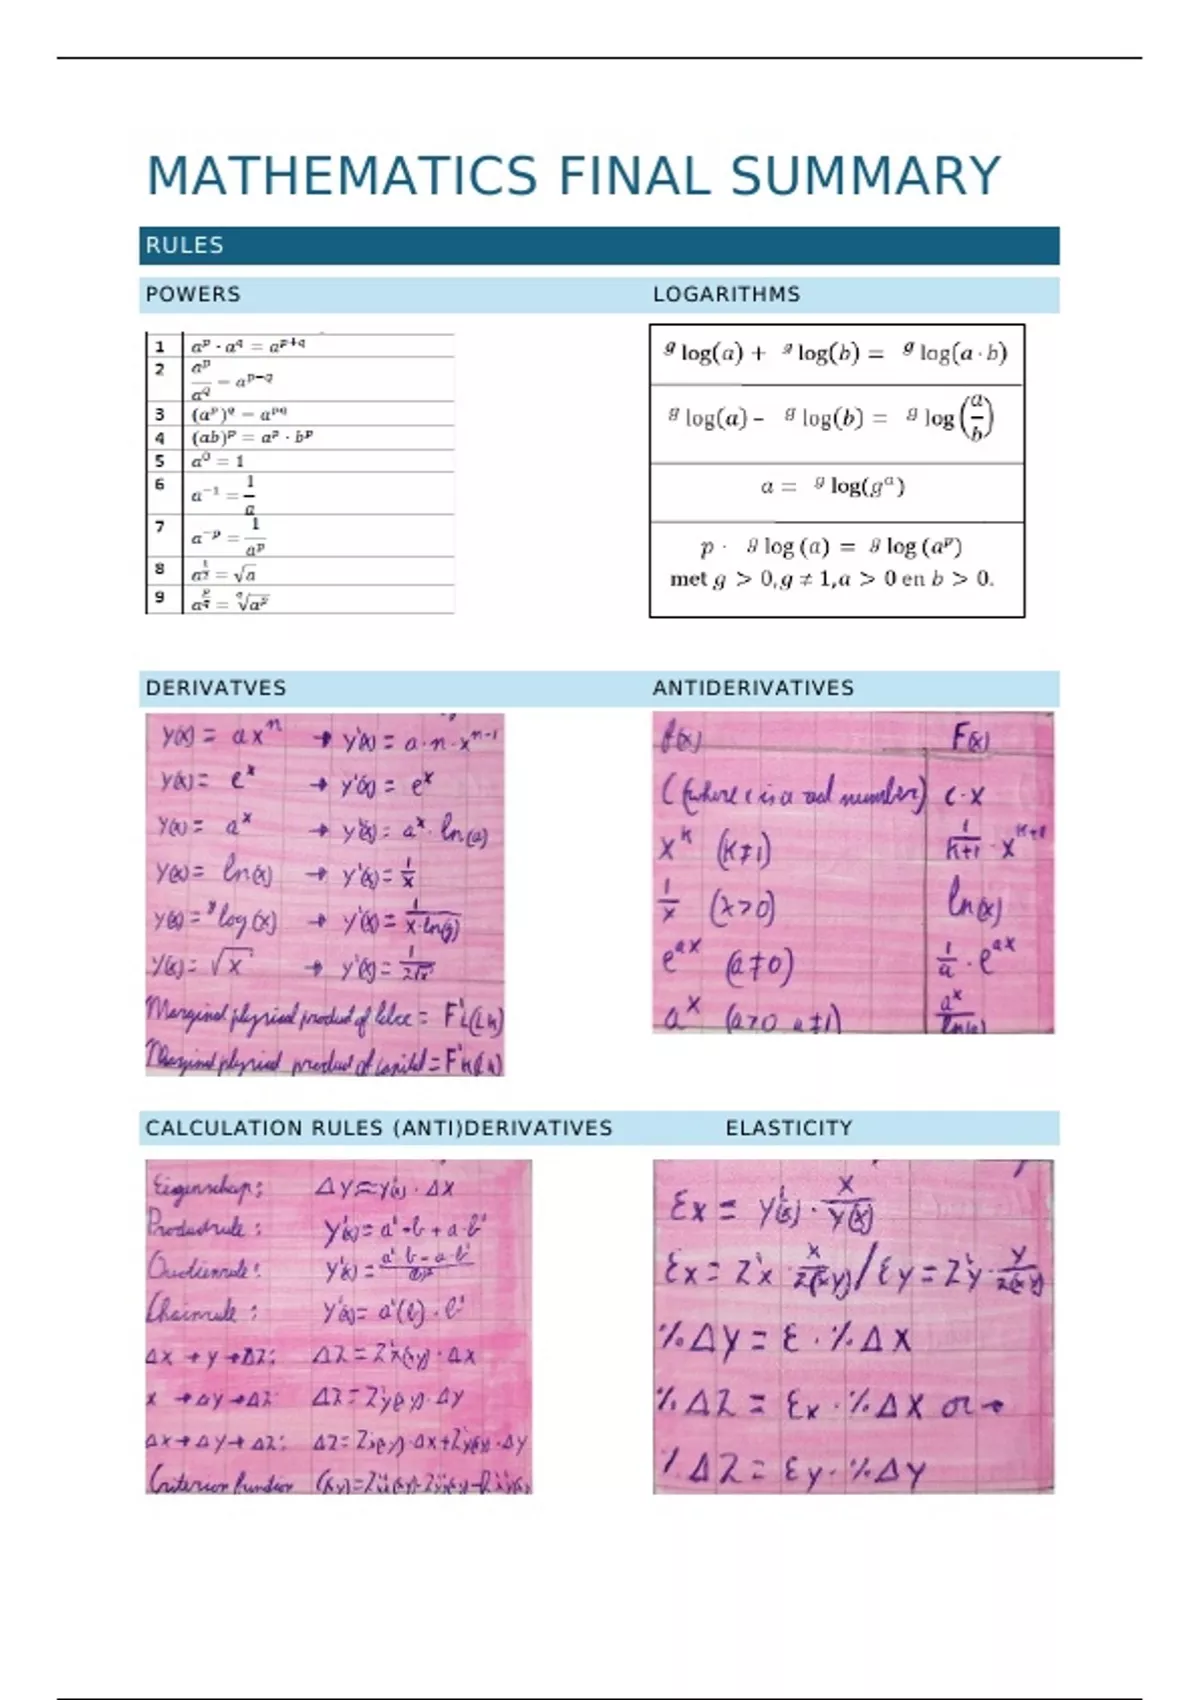 MATHEMATICS FINAL SUMMARY
RULES
POWERS
1 a^p · a^q = a^{p+q}
2 a^p/a^q = a^{p-q}
3 (a^p)^q = a^{pq}
4 (ab)^p = a^p · b^p
5 a^0 = 1
6 a^{-1} = 1/a
7 a^{-p} = 1/a^p
8 a^{1/2} = √a
9 a^{p/q} = ^q√a^p
LOGARITHMS
^g log(a) + ^g log(b) = ^g log(a · b)
^g log(a) – ^g log(b) = ^g log(a/b)
a = ^g log(g^a)
p · ^g log (a) = ^g log (a^p)
met g > 0, g ≠ 1, a > 0 en b > 0.
DERIVATVES
y(x) = ax^n → y'(x) = a·n·x^{n-1}
y(x) = e^x → y'(x) = e^x
y(x) = a^x → y'(x) = a^x · ln(a)
y(x) = ln(x) → y'(x) = 1/x
y(x) = ^g log(x) → y'(x) = 1/(x·ln(g))
y(x) = √x → y'(x) = 1/(2√x)
Marginal physical product of = F'L(L,K)
Marginal physical product of capital = F'K(L,K)
ANTIDERIVATIVES
f(x) F(x)
C (where c is a real number) c·x
x^k (k≠1) 1/(k+1) · x^{k+1}
1/x (x>0) ln(x)
e^{ax} (a≠0) 1/a · e^{ax}
a^x (a>0 a≠1) a^x/ln(a)
CALCULATION RULES (ANTI)DERIVATIVES
Eigenschap: Δy≈y'(x) · Δx
Productrule: y'(x) = a'·b + a·b'
y'(x) = (a'·b - a·b')/(b)²
Chainrule: y'(x) = a'(b) · b'
Δx → y → Δz: Δz = z'x(x,y) · Δx
x → Δy → Δz: Δz = z'y(x,y) · Δy
Δx → Δy → Δz: Δz = z'x(x,y) · Δx + z'y(x,y) · Δy
Criterion function
ELASTICITY
Ɛx = y'(x) · x/y(x)
Ɛx = z'x · x/z(x,y) / Ɛy = z'y · y/z(x,y)
%Δy = Ɛ · %Δx
%Δz = Ɛx · %Δx or →
%Δz = Ɛy · %Δy